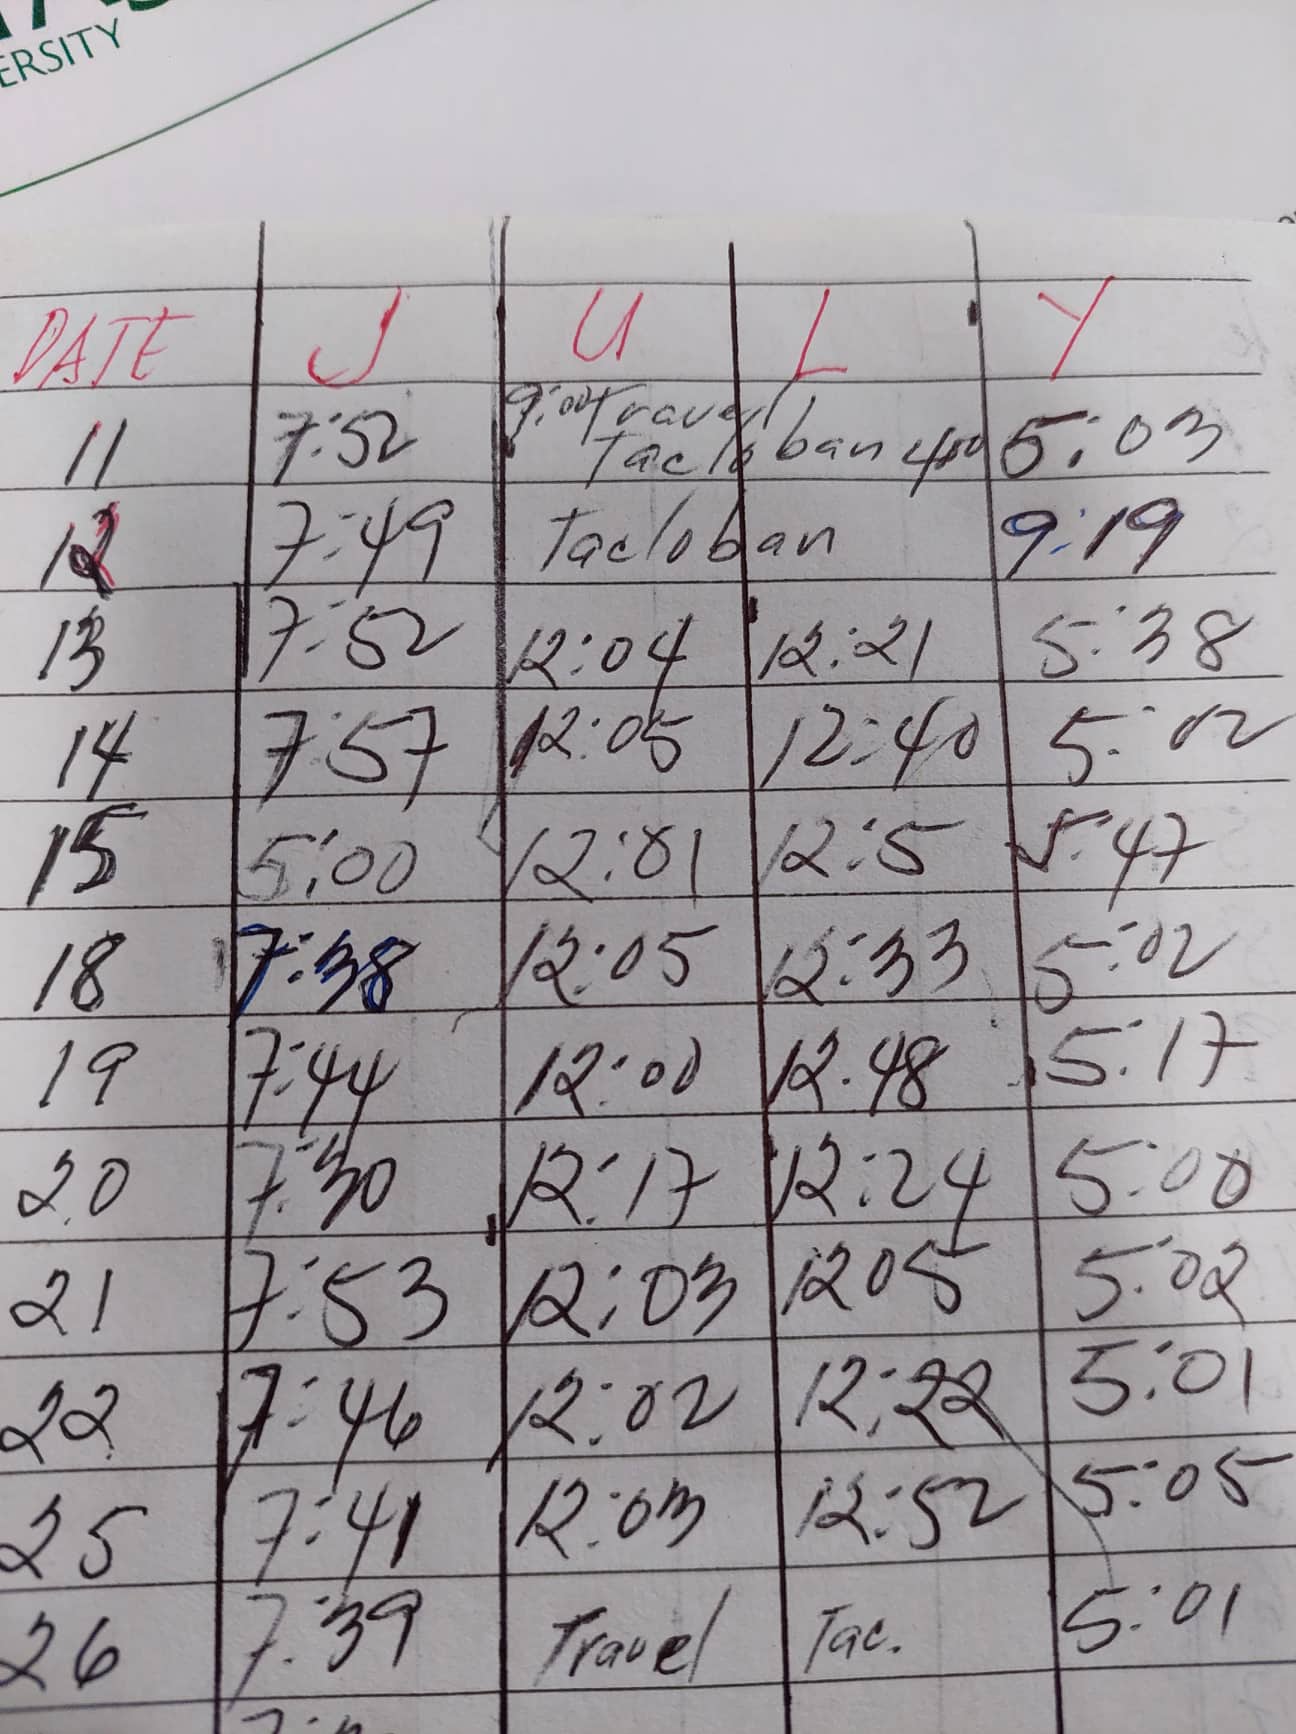 ERSITY
DATE J U L Y
11 7:52 9:00 Travel Tacloban 400 5:03
12 7:49 Tacloban 9:19
13 7:52 12:04 12:21 5:38
14 7:57 12:05 12:40 5:02
15 5:00 12:01 12:5 5:47
18 7:38 12:05 12:33 5:02
19 7:44 12:00 12.48 5:17
20 7:30 12:17 12:24 5:00
21 7:53 12:03 1205 5:02
22 7:46 12:02 12:22 5:01
25 7:41 12:03 12:52 5:05
26 7:39 Travel Tac. 5:01